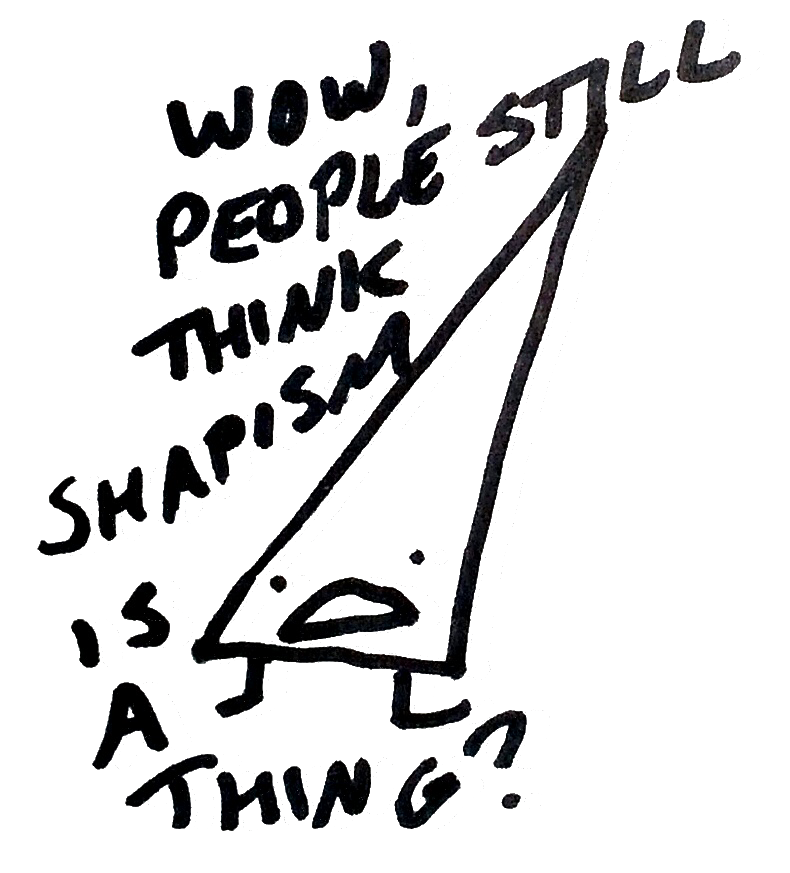 WOW,
PEOPLE STILL
THINK
SHAPISM
IS
A
THING?